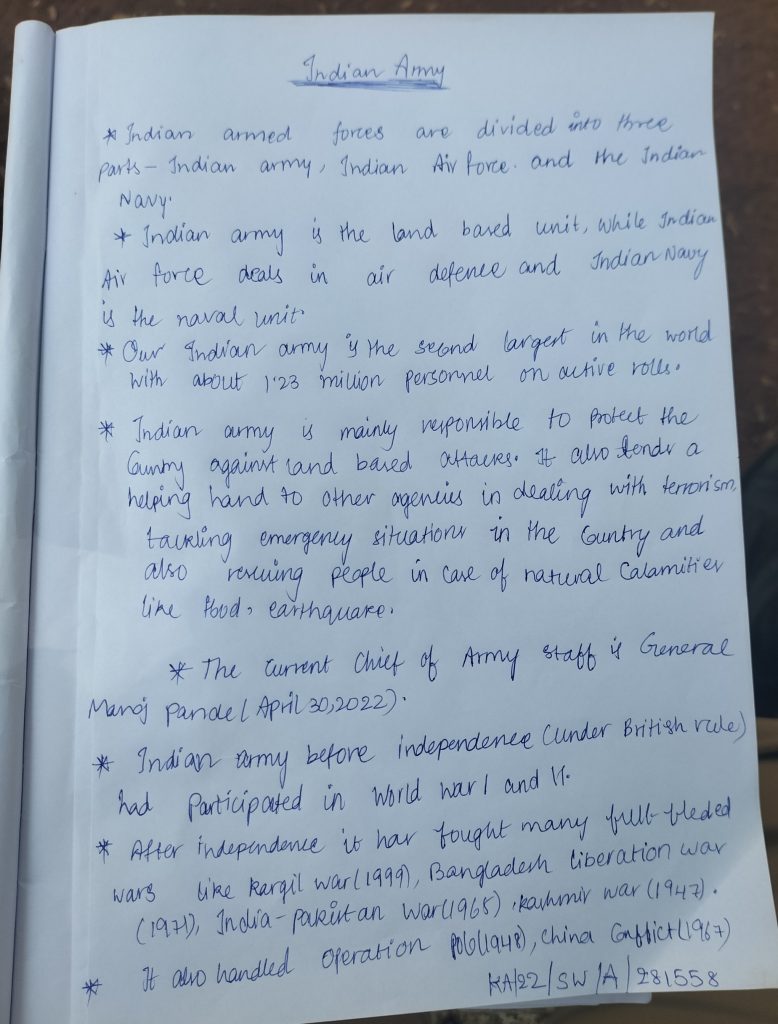 Indian Army
* Indian armed forces are divided into three
parts - Indian army, Indian Air force. and the Indian
Navy.
* Indian army is the land based unit, while Indian
Air force deals in air defence and Indian Navy
is the naval unit.
* Our Indian army is the second largest in the world
with about 1.23 million personnel on active rolls.
* Indian army is mainly responsible to protect the
Country against land based attacks. It also lends a
helping hand to other agencies in dealing with terrorism,
tackling emergency situations in the Country and
also rescuing people in case of natural Calamities
like flood, earthquake.
* The current Chief of Army staff is General
Manoj pande ( April 30,2022).
* Indian army before independence (under British rule)
had Participated in World War I and II.
* After independence it has fought many full-fleded
wars like Kargil war (1999), Bangladesh liberation war
(1971), India-pakistan war (1965), Kashmir war (1947).
* It also handled Operation Polo(1948), China Conflict (1967)
KA/22/SW/A/281558